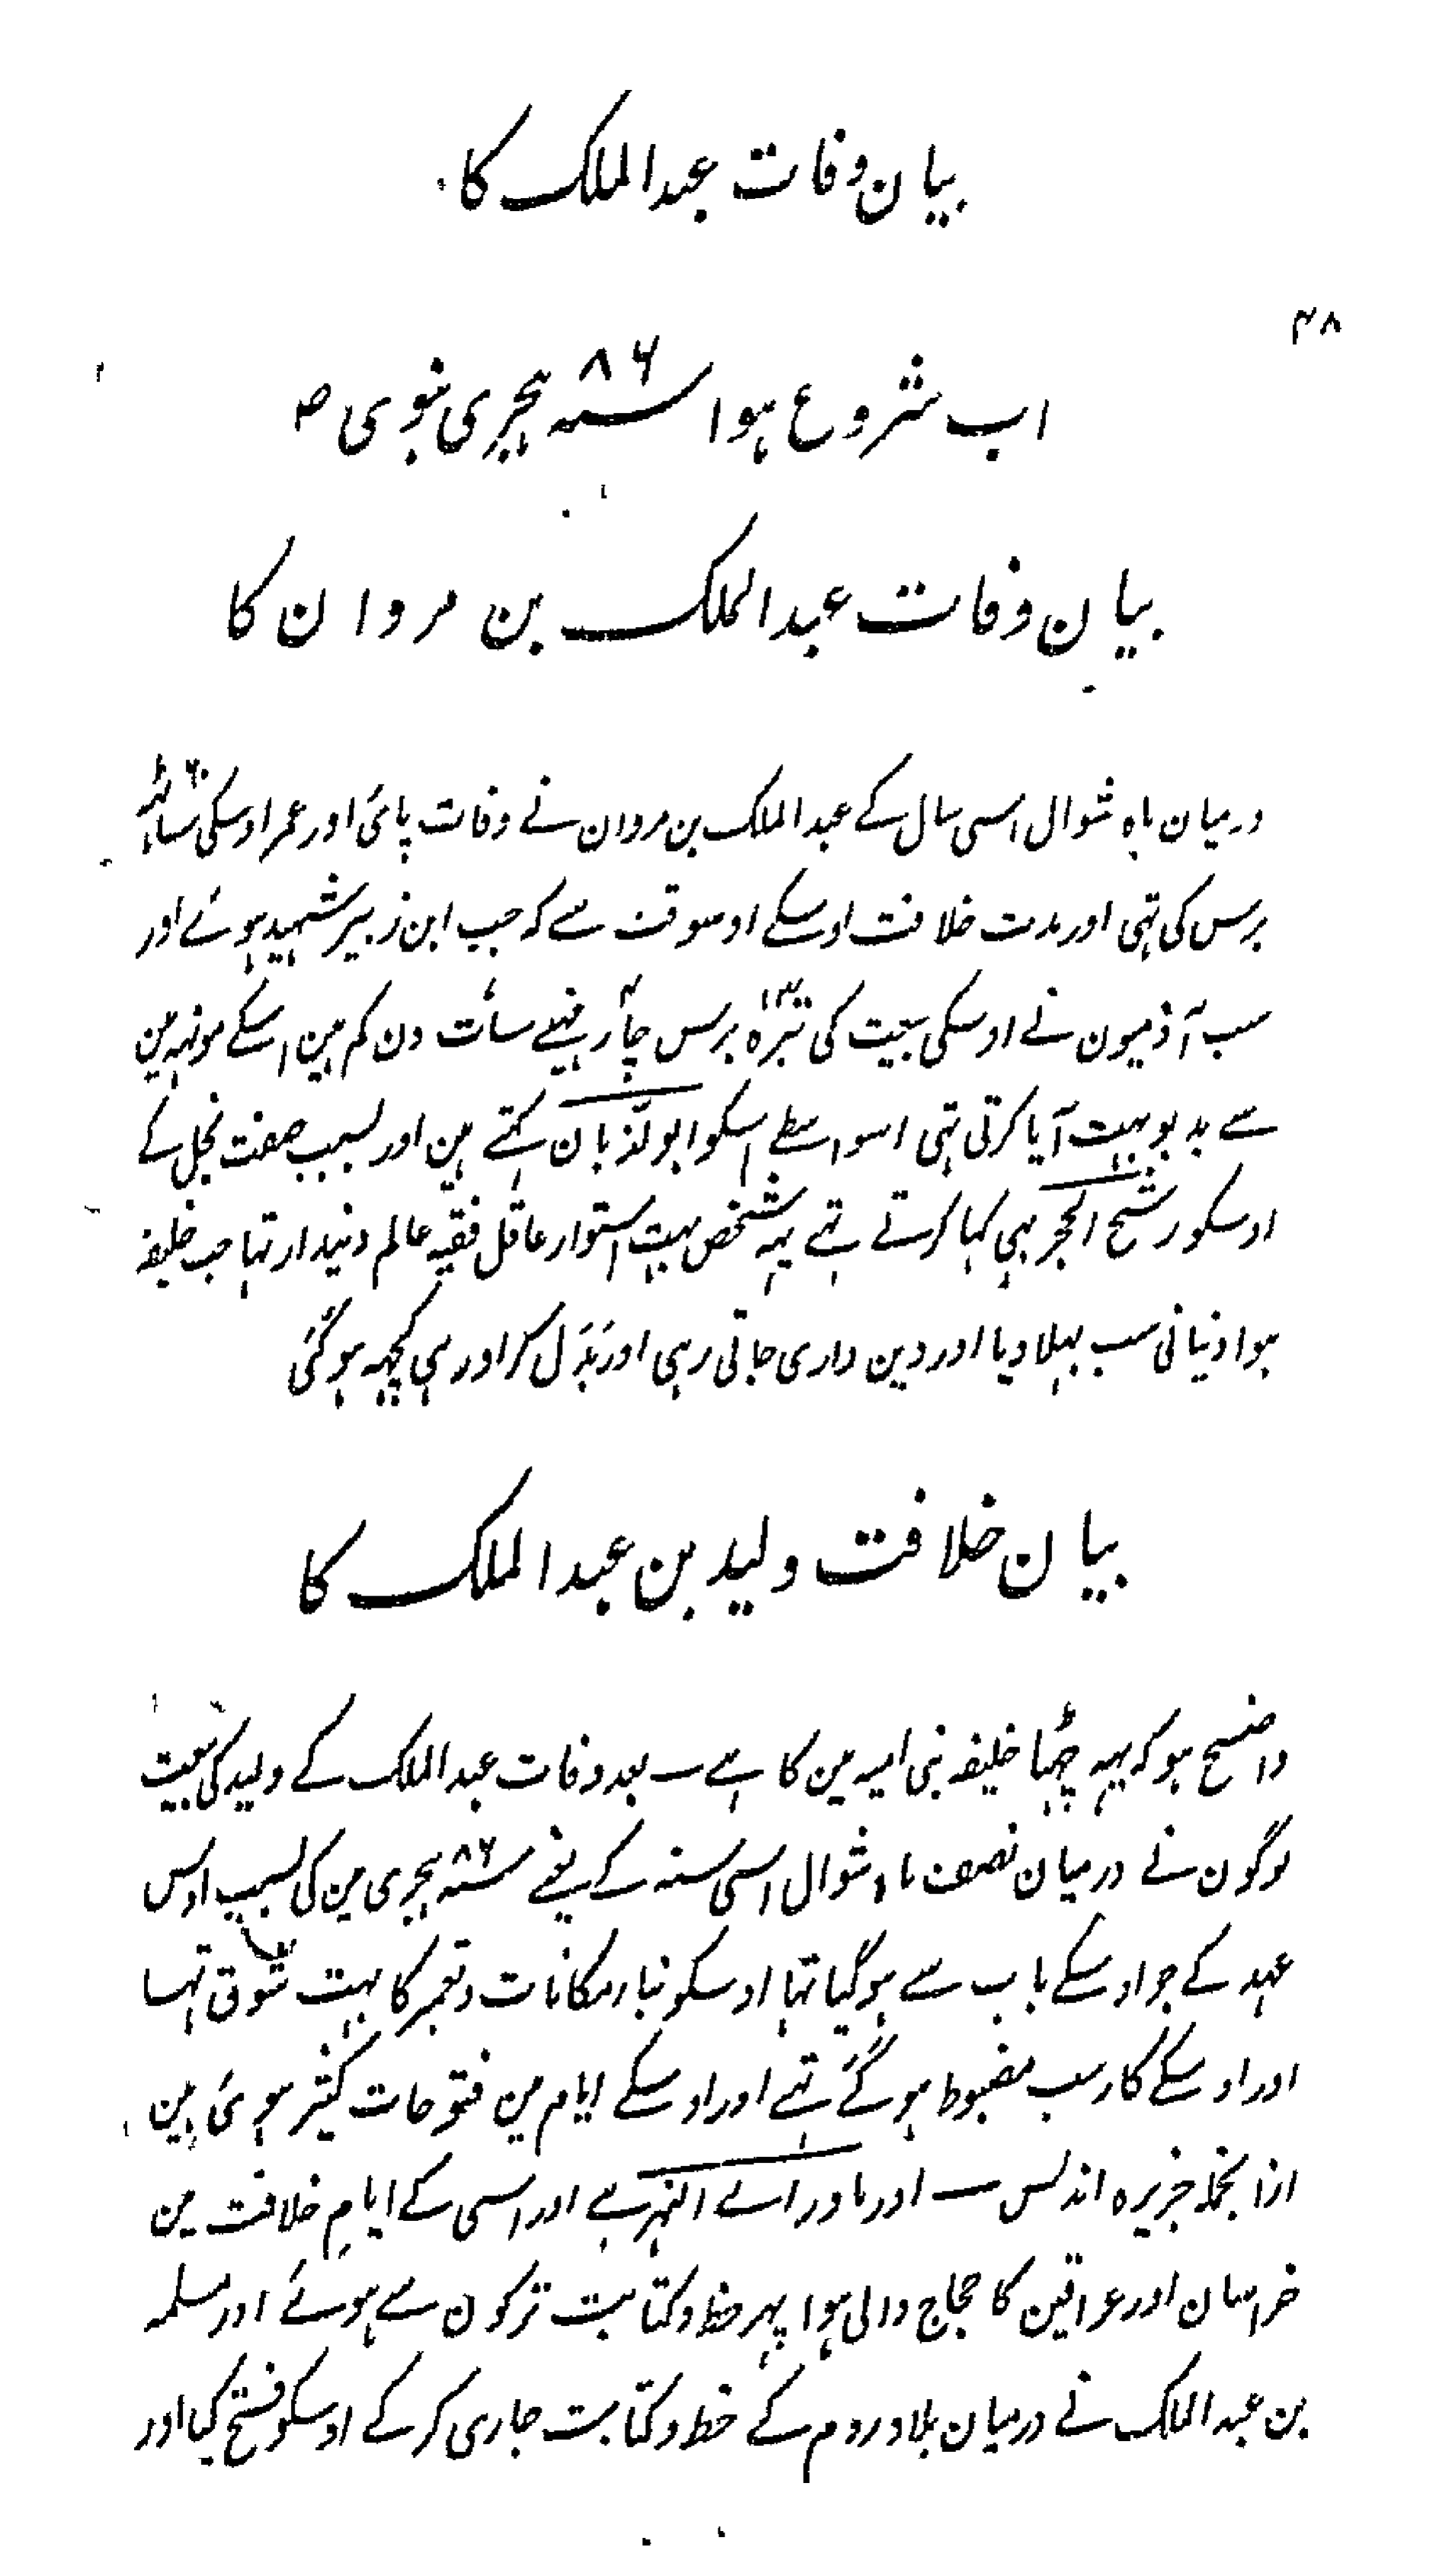 بیان وفات عبدالملک کا
۴۸
اب شروع ہوا سنہ ۸۶ ہجری نبوی ص
بیان وفات عبدالملک بن مروان کا
درمیان ماہ شوال اسی سال کے عبدالملک بن مروان نے وفات پائی اور عمر اوسکی ساٹہہ ۶۰
برس کی تہی اور مدت خلافت اوسکے اوسوقت سے کہ جب ابن زبیر شہید ہوئے اور
سب آدمیون نے اوسکی بیعت کی تیرہ ۱۳ برس چار ۴ مہینے سات دن کم ہین اسکے مونہہ مین
سے بدبو بہت آیا کرتی تہی اسواسطے اسکو ابو لذبان کہتے ہین اور بسبب صفت بخل کے
اوسکو رشح الحجر بہی کہا کرتے تہے یہہ شخص بہت استوار عاقل فقیہ عالم دیندار تہا جب خلیفہ
ہوا دنیا نی سب بہلا دیا اور دین داری جاتی رہی اور بدل کر اور ہی کچہہ ہوگئی
بیان خلافت ولید بن عبدالملک کا
واضح ہو کہ یہہ چہٹا خلیفہ بنی امیہ مین کا ہے بعد وفات عبدالملک کے ولید کی بیعت
لوگون نے درمیان نصف ماہ شوال اسی سنہ کے یعنے سنہ ۸۶ ہجری مین کی بسبب اوس
عہد کے جو اوسکے باپ سے ہوگیا تہا اوسکو بنار مکانات و تعمیر کا بہت شوق تہا
اور اوسکے کار سب مضبوط ہوگئے تہے اور اوسکے ایام مین فتوحات کثیر ہوئی ہین
ازانجملہ جزیرہ اندلس اور ماوراے النہر ہے اور اسی کے ایام خلافت مین
خراسان اور عراقین کا حجاج والی ہوا پہر خط وکتابت ترکون سے ہوئے اور مسلمہ
بن عبدالملک نے درمیان بلاد روم کے خط وکتابت جاری کرکے اوسکو فتح کیا اور